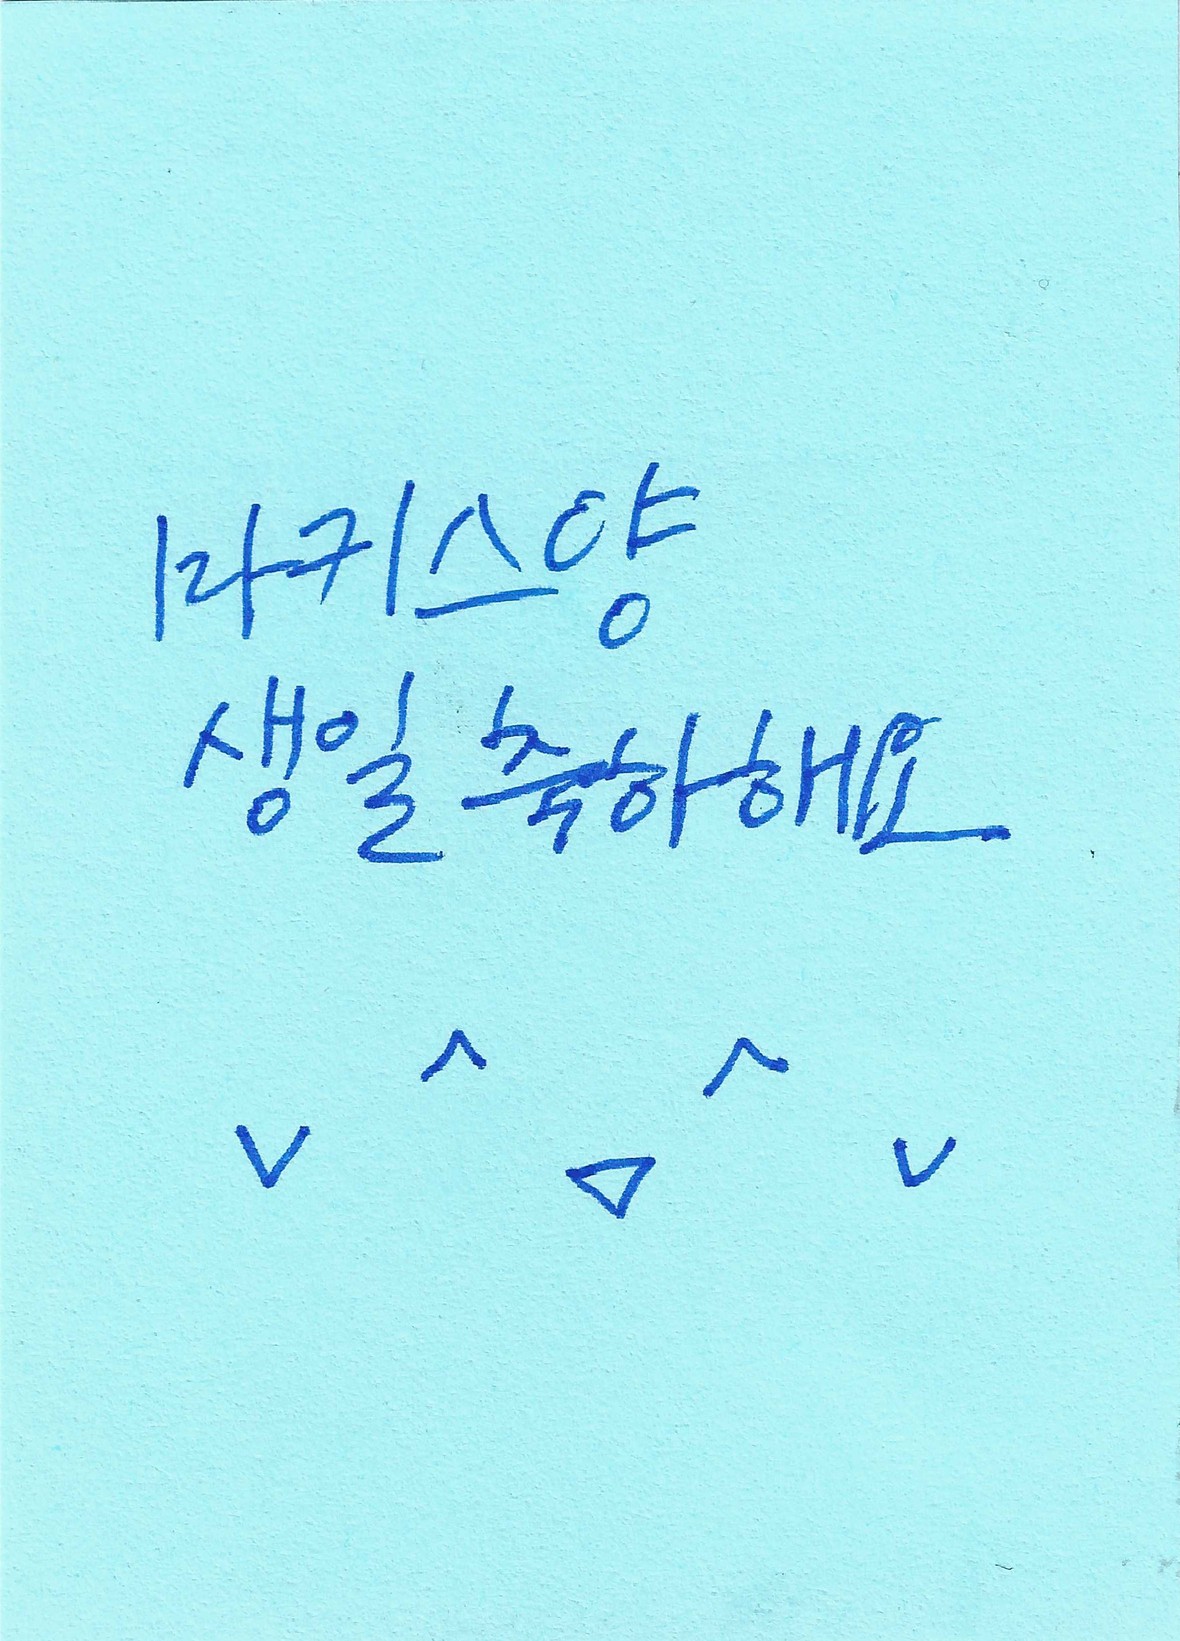 마키스양
생일 축하해요